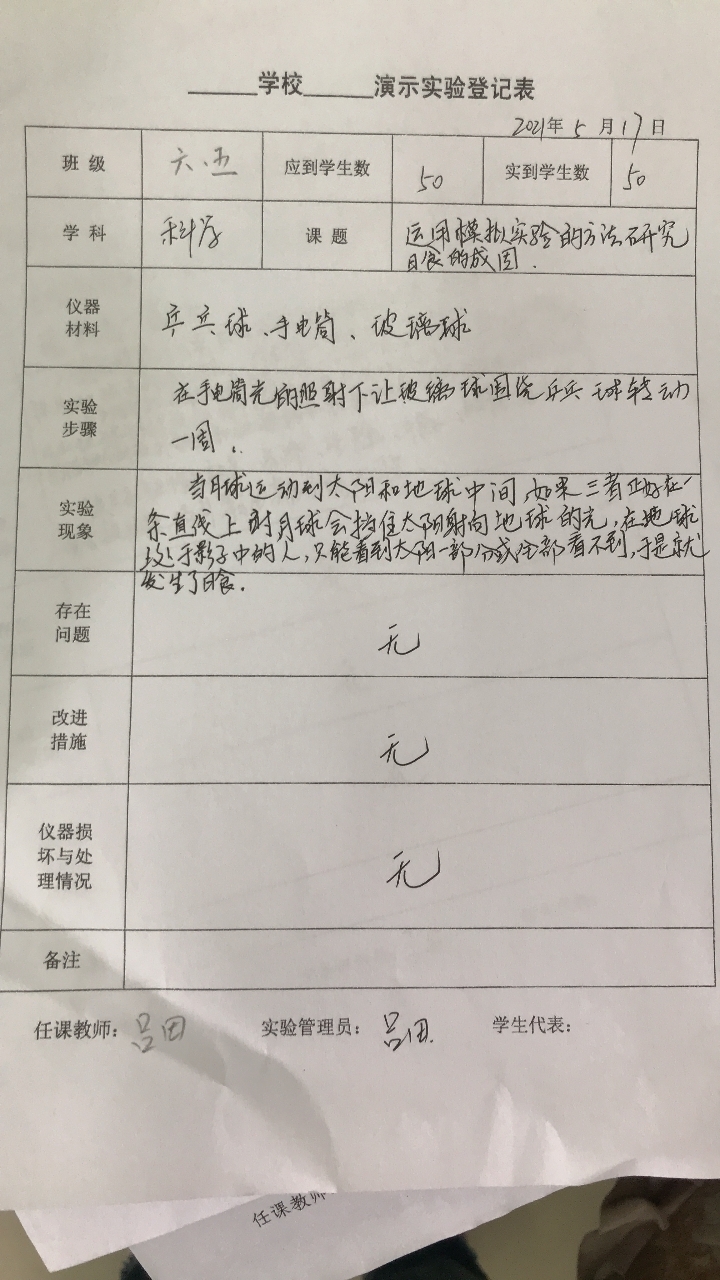 ______学校______演示实验登记表
2021年 5 月 17 日
班 级 六.五 应到学生数 50 实到学生数 50
学 科 科学 课 题 运用模拟实验的方法研究
日食的成因.
仪器
材料
乒乓球、手电筒、玻璃球
实验
步骤
在手电筒光的照射下让玻璃球围绕乒乓球转动
一周.
实验
现象
当月球运动到太阳和地球中间,如果三者正好在一
条直线上时月球会挡住太阳射向地球的光,在地球
处于影子中的人,只能看到太阳一部分或全部看不到,于是就
发生了日食.
存在
问题
无
改进
措施
无
仪器损
坏与处
理情况
无
备注
任课教师: 吕田 实验管理员: 吕田. 学生代表:
任课教师